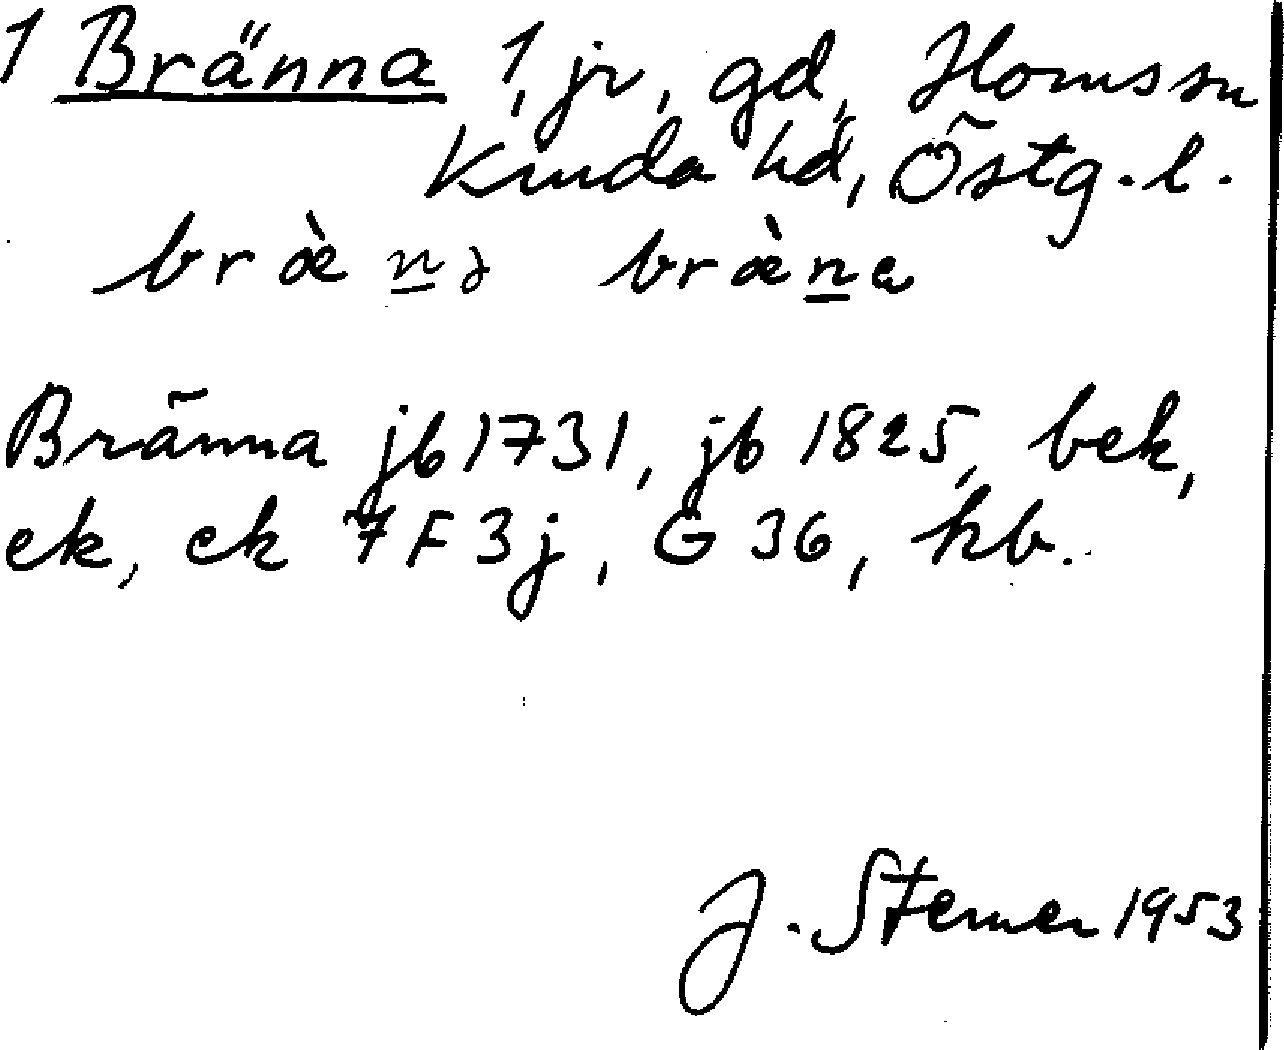 1 Bränna 1, jr, gd, Horns sn
Kinda hd, Östg.l.
bræ̀nə bræ̀na
Bränna jb 1731, jb 1825, bek,
ek, ck 7 F 3 j, G 36, hb.
J. Sterner 1953